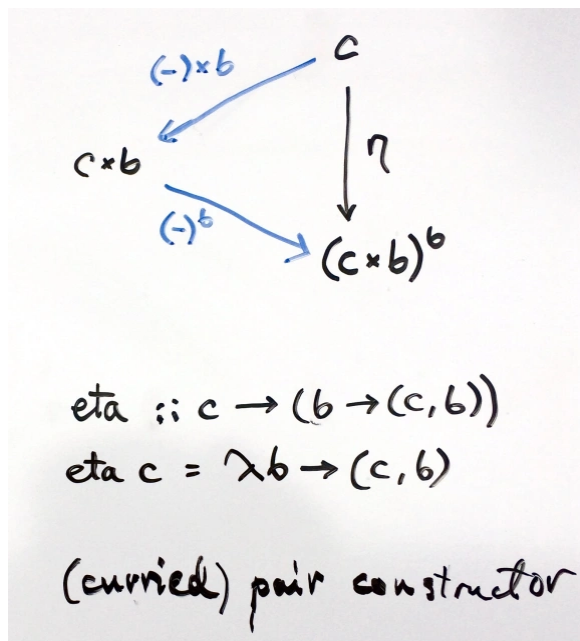 (-)×b
c
c×b
η
(-)ᵇ
(c×b)ᵇ
eta :: c → (b → (c, b))
eta c = λb → (c, b)
(curried) pair constructor